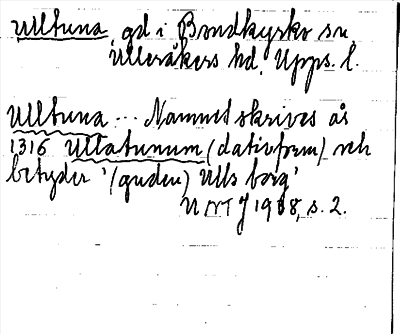 Ulltuna, gd i Bondkyrko sn
Ulleråkers hd. Upps. l.
Ulltuna ... Namnet skrives år
1316 Ullatunum (dativform) och
betyder '(guden) Ulls borg'
UNT 1968, s. 2.